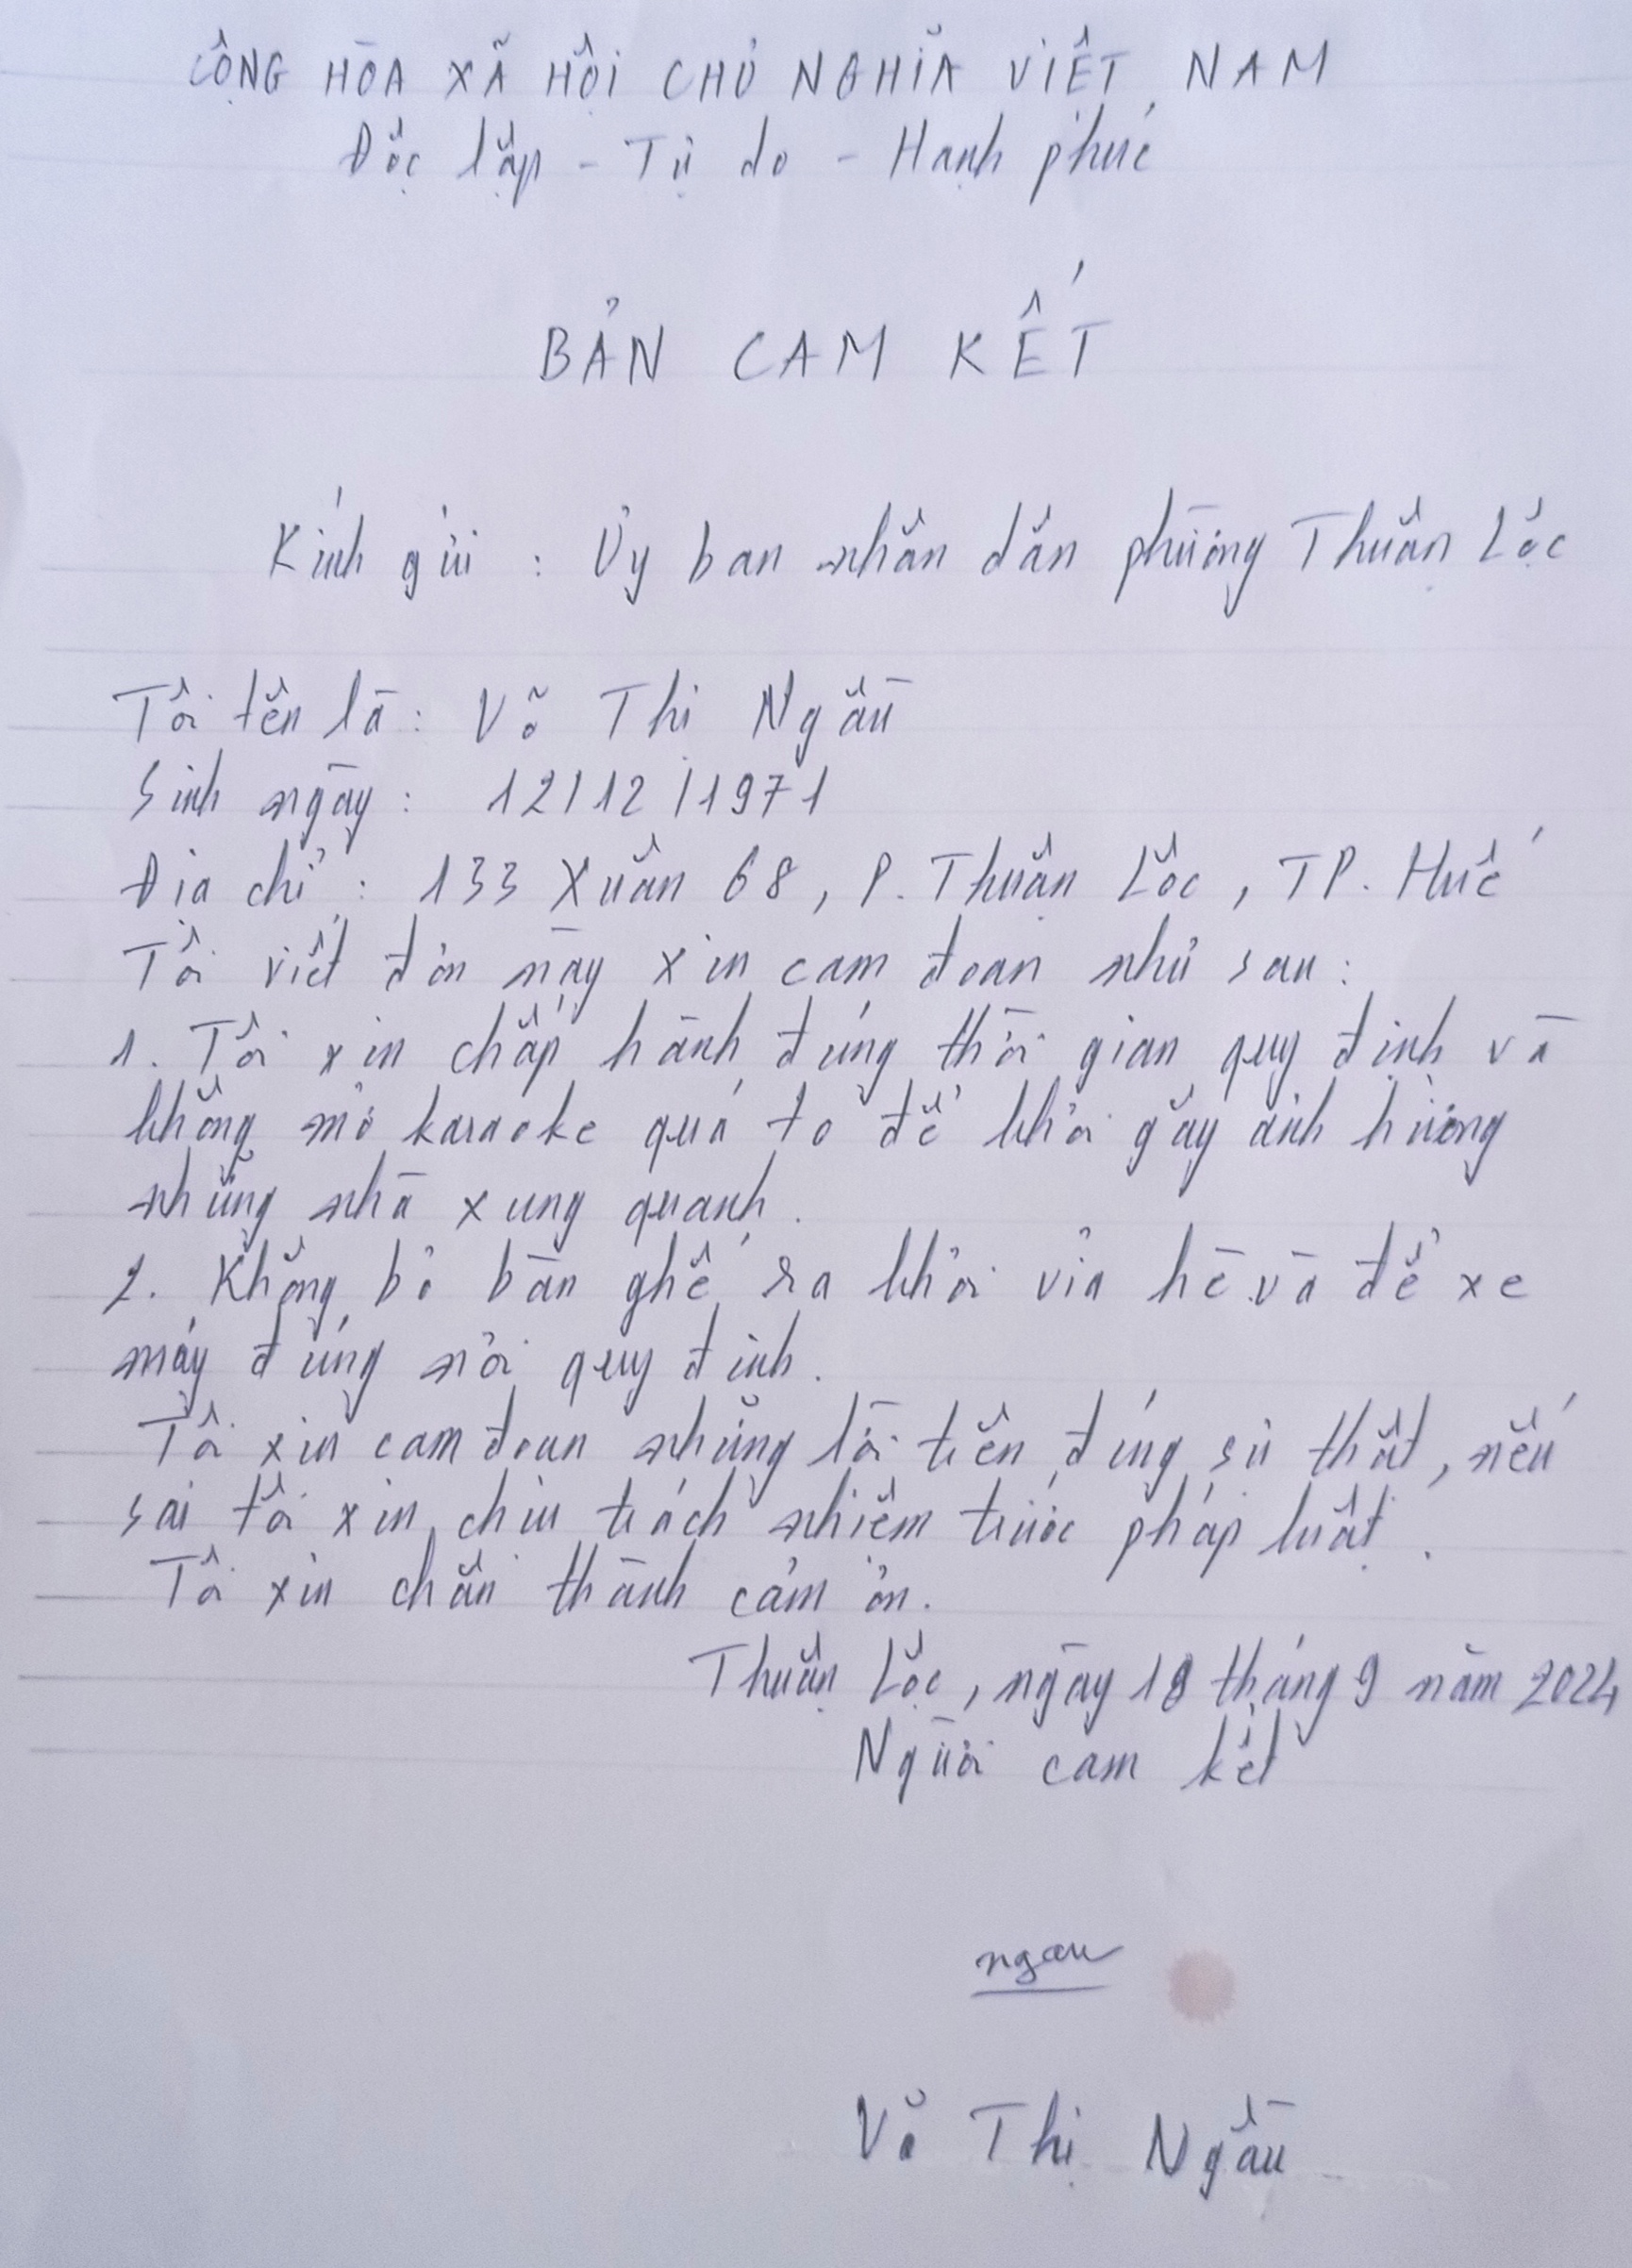 CỘNG HÒA XÃ HỘI CHỦ NGHĨA VIỆT NAM
Độc lập - Tự do - Hạnh phúc
BẢN CAM KẾT
Kính gửi : Ủy ban nhân dân phường Thuận Lộc
Tôi tên là : Võ Thị Ngầu
Sinh ngày : 12/12/1971
Địa chỉ : 133 Xuân 68, P. Thuận Lộc, TP. Huế
Tôi viết đơn này xin cam đoan như sau :
1. Tôi xin chấp hành đúng thời gian quy định và
không mở karaoke quá to để khỏi gây ảnh hưởng
những nhà xung quanh.
2. Không bỏ bàn ghế ra khỏi vỉa hè và để xe
máy đúng nơi quy định.
Tôi xin cam đoan những lời trên đúng sự thật, nếu
sai tôi xin chịu trách nhiệm trước pháp luật.
Tôi xin chân thành cảm ơn.
Thuận Lộc, ngày 18 tháng 9 năm 2024
Người cam kết
ngau
Võ Thị Ngầu